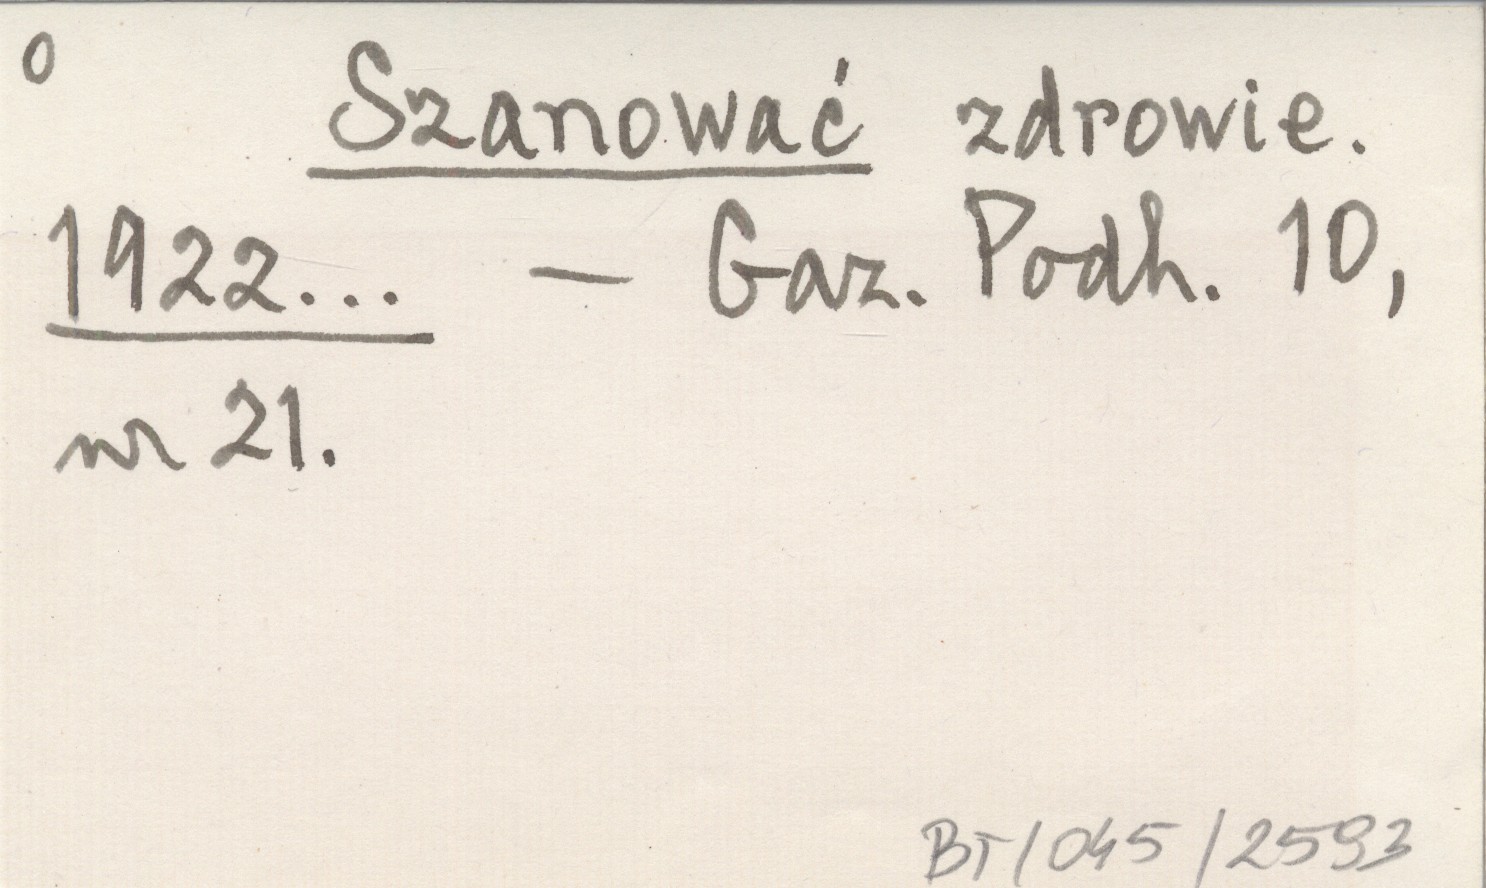 o
Szanować zdrowie.
1922... — Gaz. Podh. 10,
nr 21.
BT/045/2593